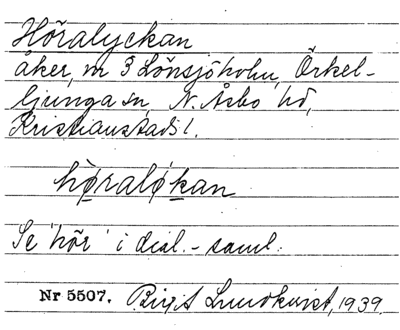 Höralyckan
åker, nr 3 Lönsjöholm, Örkel-
ljunga sn, N. Åsbo hd,
Kristianstads l.
hø̀ralø̀kan
Se 'hör' i dial.-saml.
Nr 5507. Birgit Lundkvist, 1939.